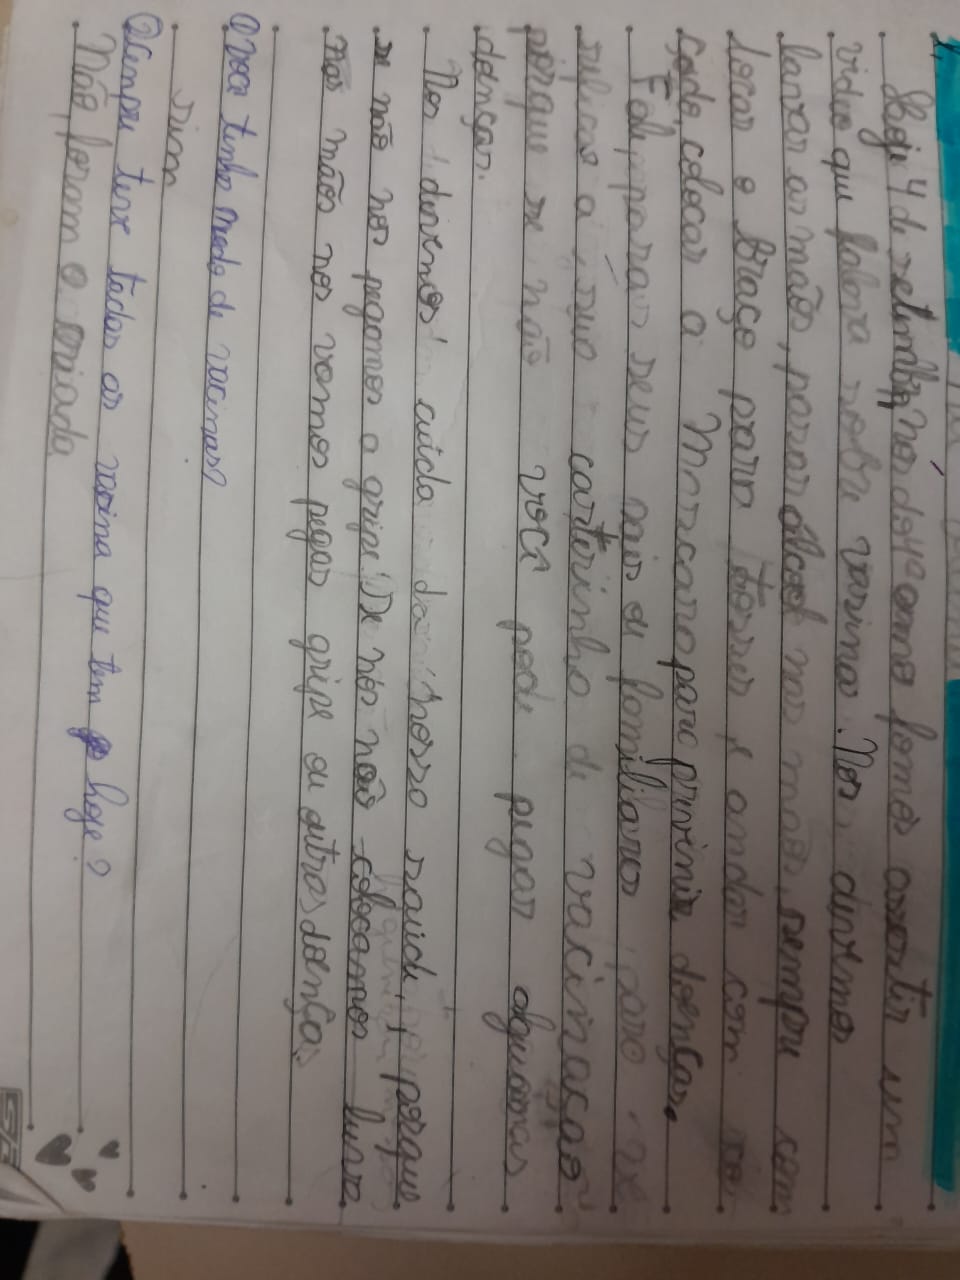 Hoje 4 de setembro, nós do 4º ano fomos assistir um
video que falava sobre vacina. Nos devemos
lavar as mãos, passar álcool nas mãos, sempre com
tocar o braço para tossir e andar com
colocar a Mascara para previnir doenças.
E de para seus pais ou familiares para ve
a sua carteirinha de vacinação
porque se não você pode pegar alguamas
doenças.
Nos devemos cuida da nossa sauide, porque
se não nos pegamos a gripe. Se nós não colocamos luva
nas mãos nos vamos pegar gripe ou outras doença.
① voce tinho medo de vacinas?
Sim
② Sempre teve todas as vacina que tem hoje?
Não, foram criada